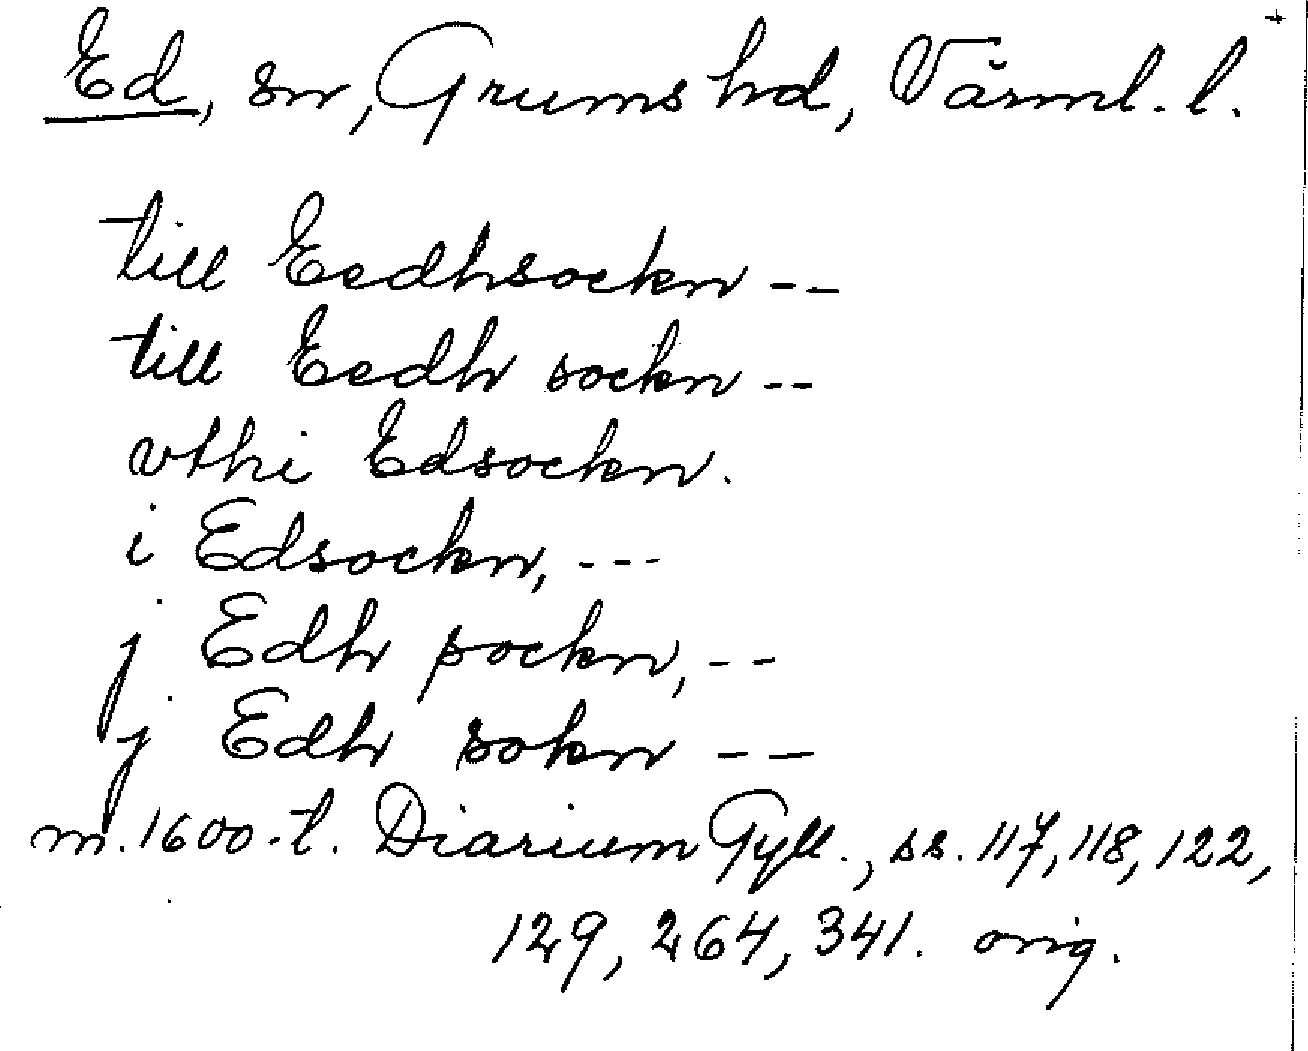 Ed, sn, Grums hd, Värml. l. +
till Eedhsockn --
till Eedh sockn --
vthi Edsockn.
i Edsockn, ---
j Edh sockn, --
j Edh sokn --
m. 1600-t. Diarium Gyll., ss. 117, 118, 122,
129, 264, 341. orig.